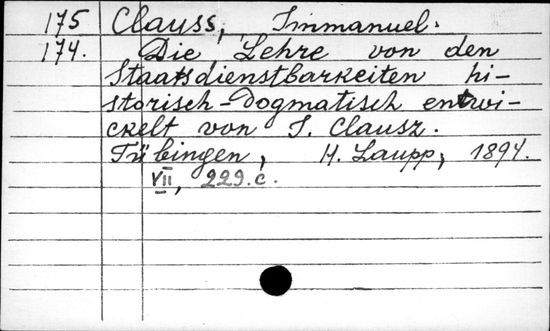 175 Clauss, Immanuel.
174. Die Lehre von den
Staatsdienstbarkeiten hi-
storisch-dogmatisch entwi-
ckelt von I. Clausz.
Tübingen, H. Laupp, 1894.
VII, 229 c.